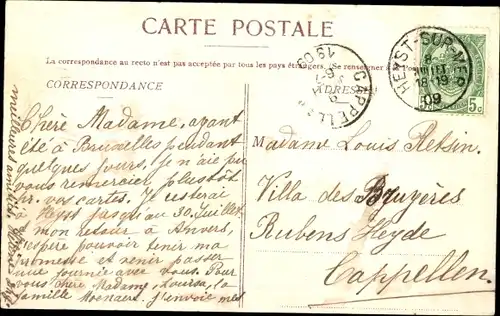 CARTE POSTALE
La correspondance au recto n'est pas acceptée par tous les pays étrangers. (Se renseigner à la Poste)
CORRESPONDANCE
ADRESSE
HEYST-SUR-MER
8-
JUILLET
18-19
09
5c
CAPPELLEN
1909
Chère Madame, ayant
été à Bruxelles pendant
quelques jours, je n'ai pu
vous remercier plustôt
pr. vos cartes. Je resterai
à Heyst jusqu'au 30 Juillet.
mon retour à Anvers,
j'espère pouvoir tenir ma
promesse et venir passer
une journée avec vous. Pour
vous chère Madame, Louisa, la
famille Moenaert. J'envoie mes
meilleures amitiés
Madame Louis Retsin.
Villa des Bruyères
Rubens Heyde
Cappellen.